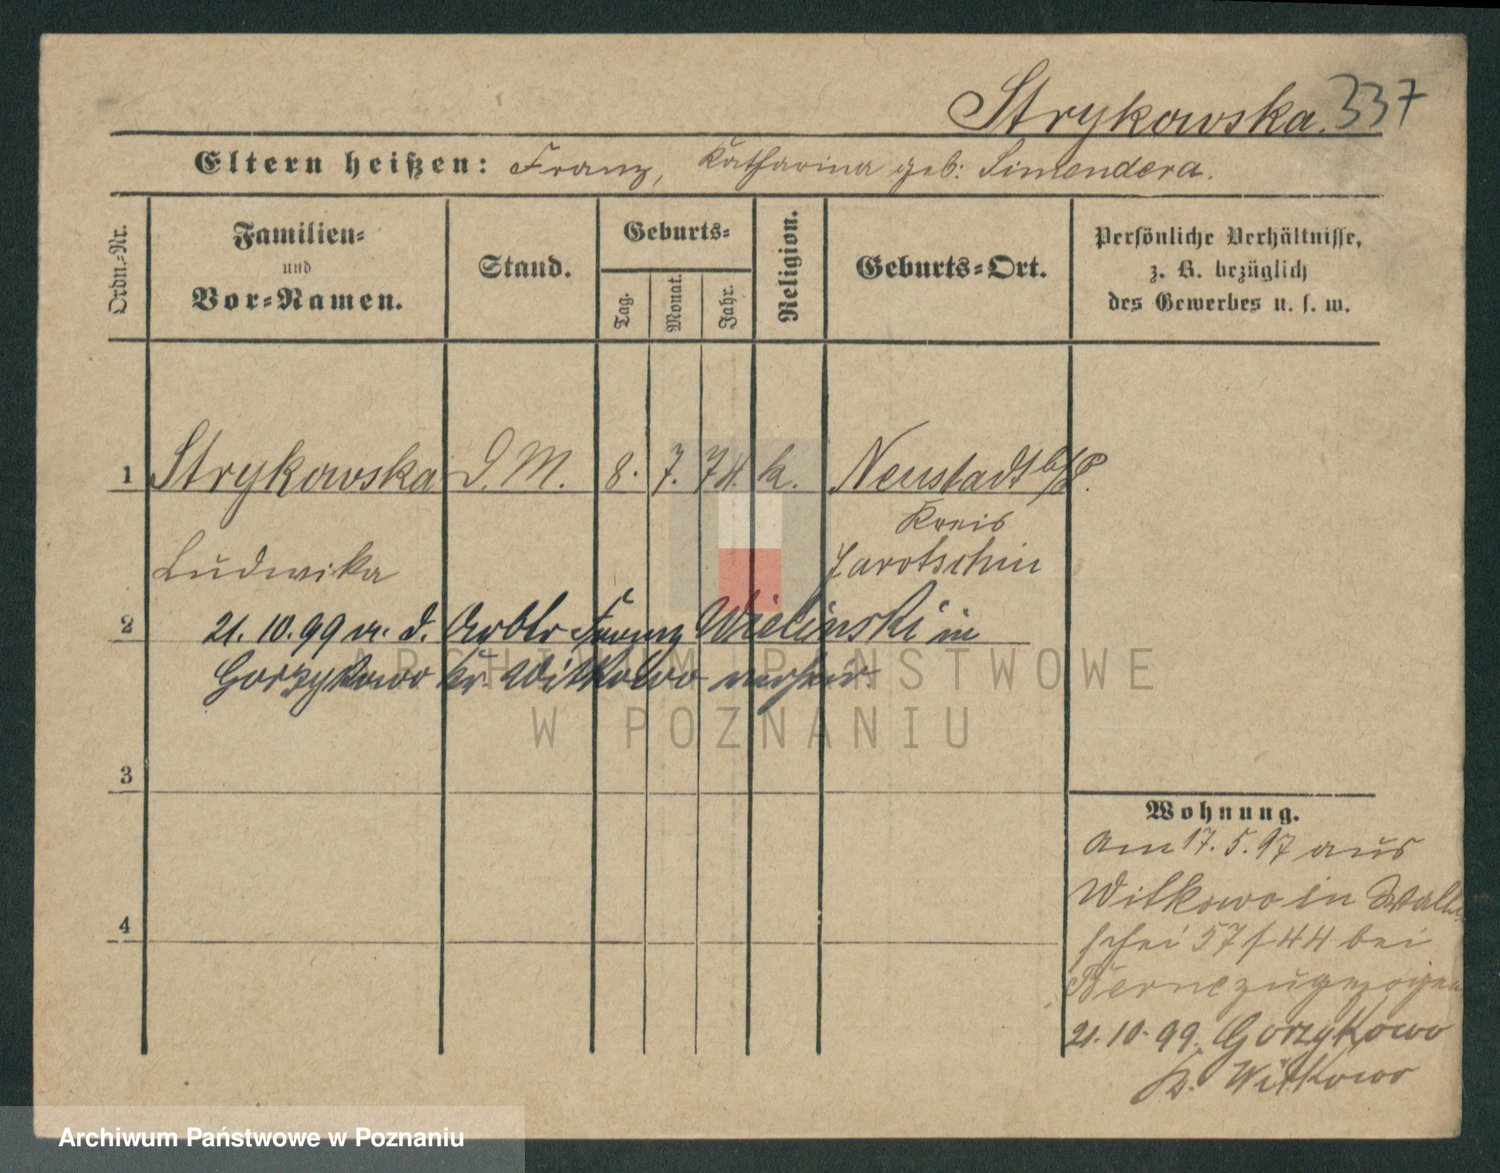 Strykowska. 337
Eltern heißen: Franz, Katharina geb: Simendera.
Ordn.-Nr.
Familien-
und
Vor-Namen.
Stand.
Geburts-
Tag.
Monat.
Jahr.
Religion.
Geburts-Ort.
Persönliche Verhältnisse,
z. B. bezüglich
des Gewerbes u. s. w.
1 Strykowska D. M. 8. 7. 78. k. Neustadt b/P.
Kreis
Ludwika Jarotschin
2 21. 10. 99 m. d. Arbtr Franz Wielinski in
Gorzykowo Kr. Witkowo verheir.
ARCHIWUM PAŃSTWOWE
W POZNANIU
3
Wohnung.
Am 17. 5. 97 aus
Witkowo in Walli
schei 57/44 bei
zugezogen
4
21. 10. 99. Gorzykowo
Kr. Witkowo
Archiwum Państwowe w Poznaniu